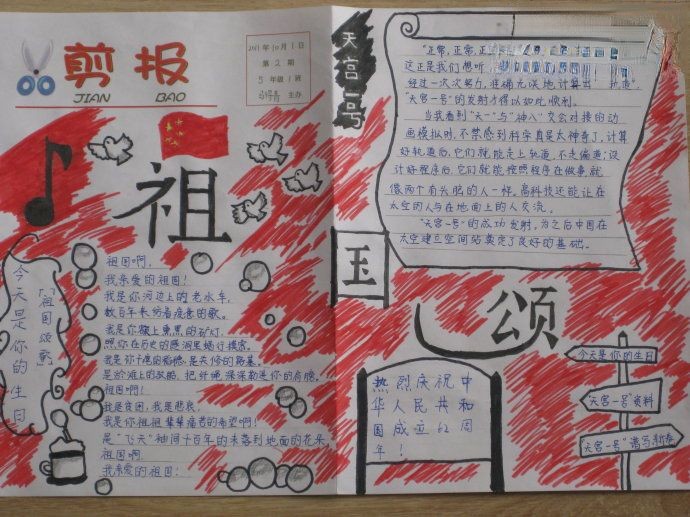 剪报
JIAN BAO
2011年10月1日
第2期
5年级1班
主办
祖国颂
今天是你的生日
《祖国颂歌》
祖国啊,
我亲爱的祖国!
我是你河边上的老水车,
数百年来纺着疲惫的歌。
我是你额上熏黑的矿灯,
照你在历史的隧洞里蜗行摸索。
我是你干瘪的稻穗,是失修的路基。
是淤滩上的驳船,把纤绳深深勒进你的肩膀。
祖国啊!
我是贫困,我是悲哀,
我是你祖祖辈辈痛苦的希望啊!
是“飞天”袖间千百年的未落到地面的花朵,
祖国啊,
我亲爱的祖国!
天宫一号
“正常,正常,正
这正是我们想听
经过一次次努力,准确无误地计算出 轨道,”
“天宫一号”的发射才得以如此顺利。
当我看到“天一”与“神八”交会对接的动
画模拟时,不禁感到科学真是太神奇了,计算
好轨道后,它们就能走上轨道,不走偏道;设
计好程序后,它们就能按照程序在做事,就
像两个有头脑的人一样,高科技还能让在
太空的人与在地面上的人交流。
“天宫一号”的成功发射,为之后中国在
太空建立空间站奠定了良好的基础。
热烈庆祝中
华人民共和
国成立62周
年!
今天是你的生日
“天宫一号”资料
“天宫一号”